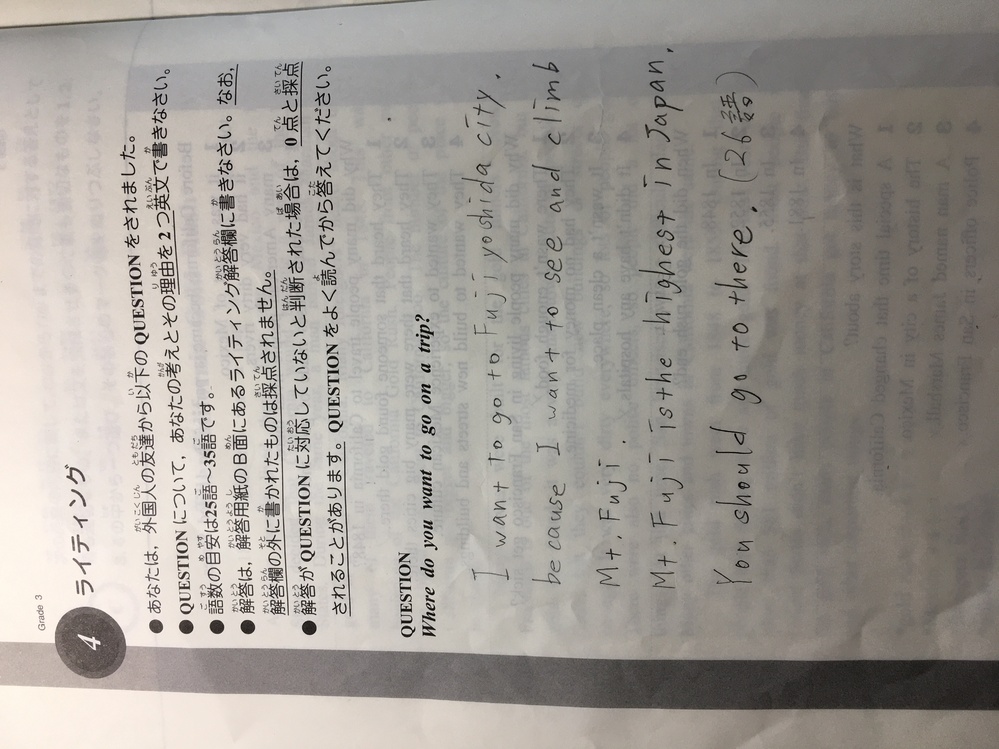 Grade 3
4 ライティング
●あなたは，外国人の友達から以下の QUESTION をされました。
●QUESTION について，あなたの考えとその理由を2つ英文で書きなさい。
●語数の目安は25語〜35語です。
●解答は，解答用紙のB面にあるライティング解答欄に書きなさい。なお，
解答欄の外に書かれたものは採点されません。
●解答が QUESTION に対応していないと判断された場合は，0点と採点
されることがあります。QUESTION をよく読んでから答えてください。
QUESTION
Where do you want to go on a trip?
I want to go to Fuji yoshida city.
because I want to see and climb
Mt. Fuji.
Mt. Fuji isthe highest in Japan.
You should go to there. (26語)